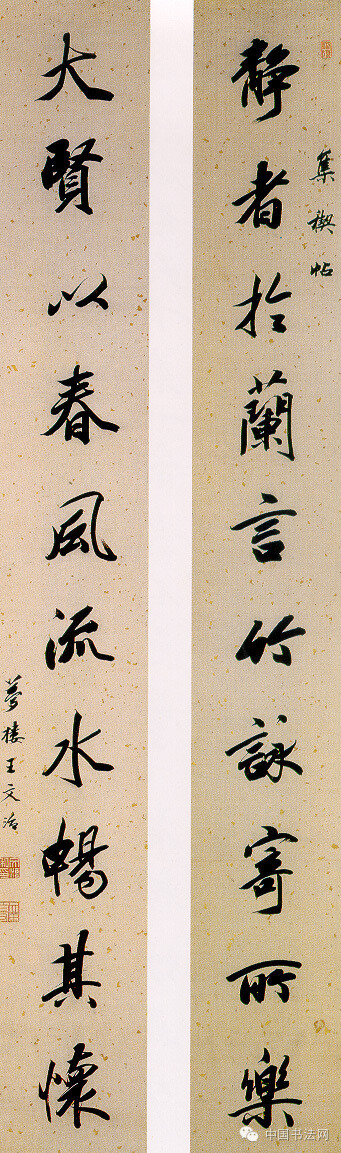 集禊帖
靜者於蘭言竹詠寄所樂
大賢以春風流水暢其懷
夢樓王文治
中国书法网